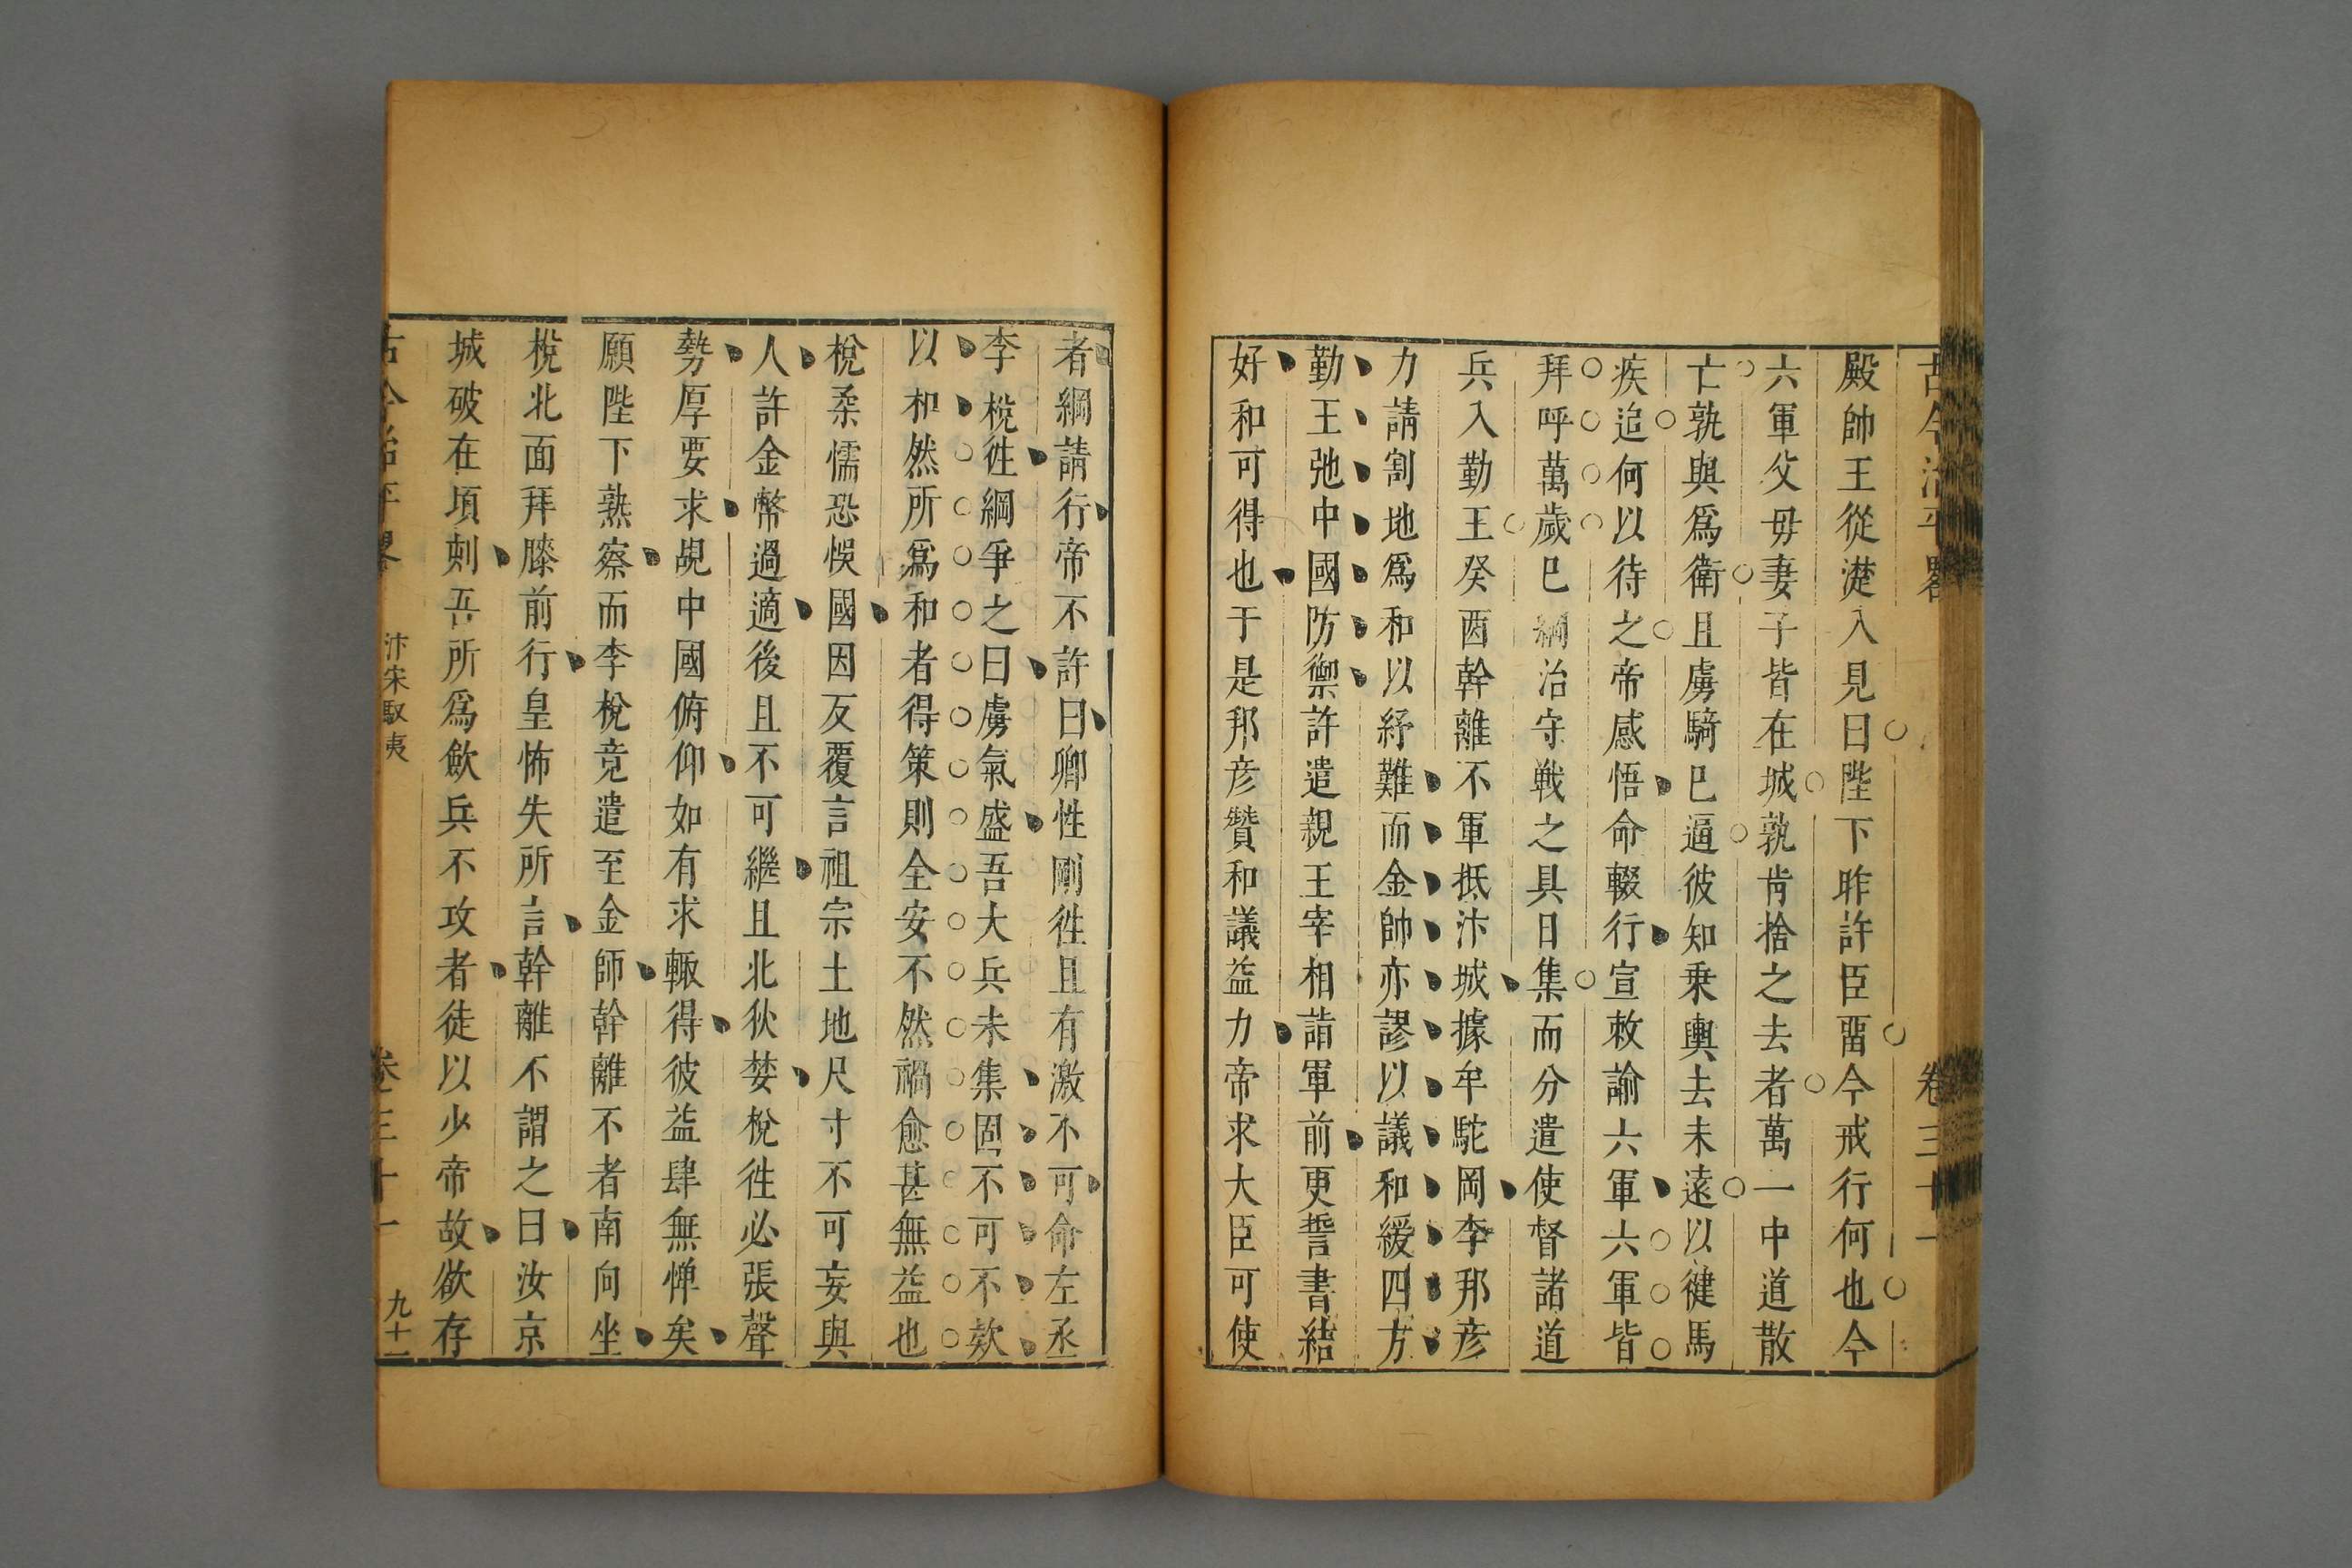 古今治平畧 卷三十一
殿帥王從濋入見曰陛下昨許臣畱今戒行何也今
六軍父毋妻子皆在城孰肯捨之去者萬一中道散
亡孰與爲衛且虜騎巳逼彼知乗輿去未遠以健馬
疾追何以待之帝感悟命輟行宣敕諭六軍六軍皆
拜呼萬歲巳綱治守戰之具日集而分遣使督諸道
兵入勤王癸酉幹離不軍抵汴城據牟駝岡李邦彦
力請割地爲和以紓難而金帥亦謬以議和緩四方
勤王弛中國防禦許遣親王宰相詣軍前更誓書結
好和可得也于是邦彦贊和議益力帝求大臣可使
者綱請行帝不許曰卿性剛徃且有激不可命左丞
李梲徃綱爭之曰虜氣盛吾大兵未集固不可不欵
以和然所爲和者得策則全安不然禍愈甚無益也
梲柔懦恐悞國因反覆言祖宗土地尺寸不可妄與
人許金幣過適後且不可繼且北狄婪梲徃必張聲
勢厚要求覘中國俯仰如有求輙得彼益肆無憚矣
願陛下熟察而李梲竟遣至金師幹離不者南向坐
梲北面拜膝前行皇怖失所言幹離不謂之曰汝京
城破在頃刻吾所爲歛兵不攻者徒以少帝故欲存
古今治平畧 汴宋馭夷 卷三十一 九十二